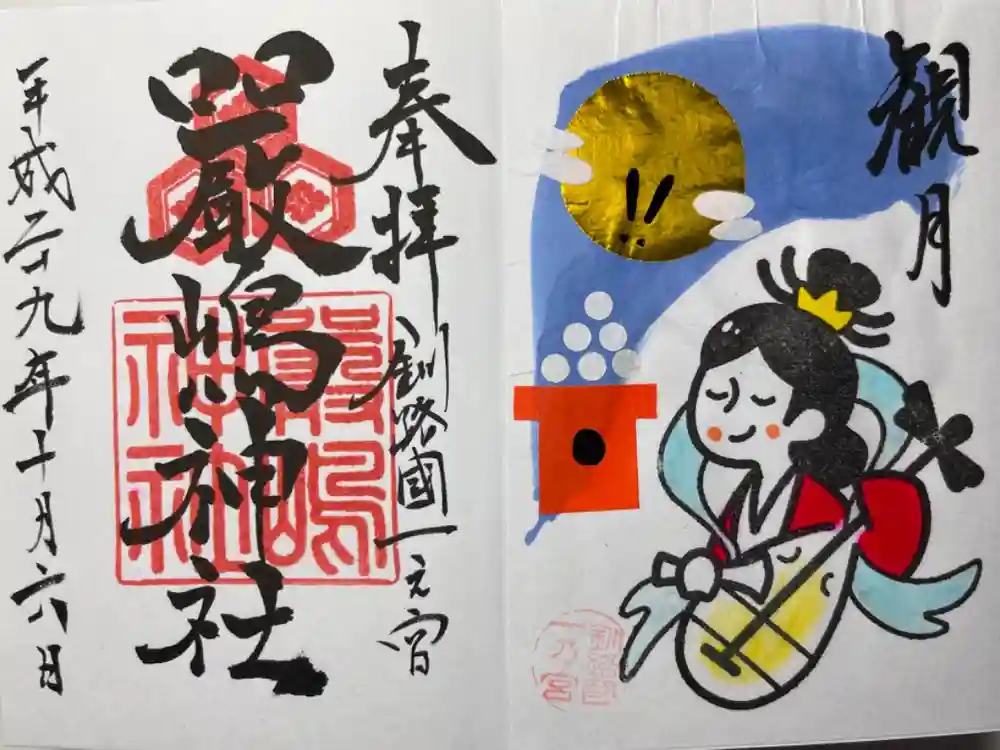 観月
奉拝
釧路國一之宮
嚴嶋神社
平成二十九年十月六日
嚴嶋神社
釧路國一乃宮